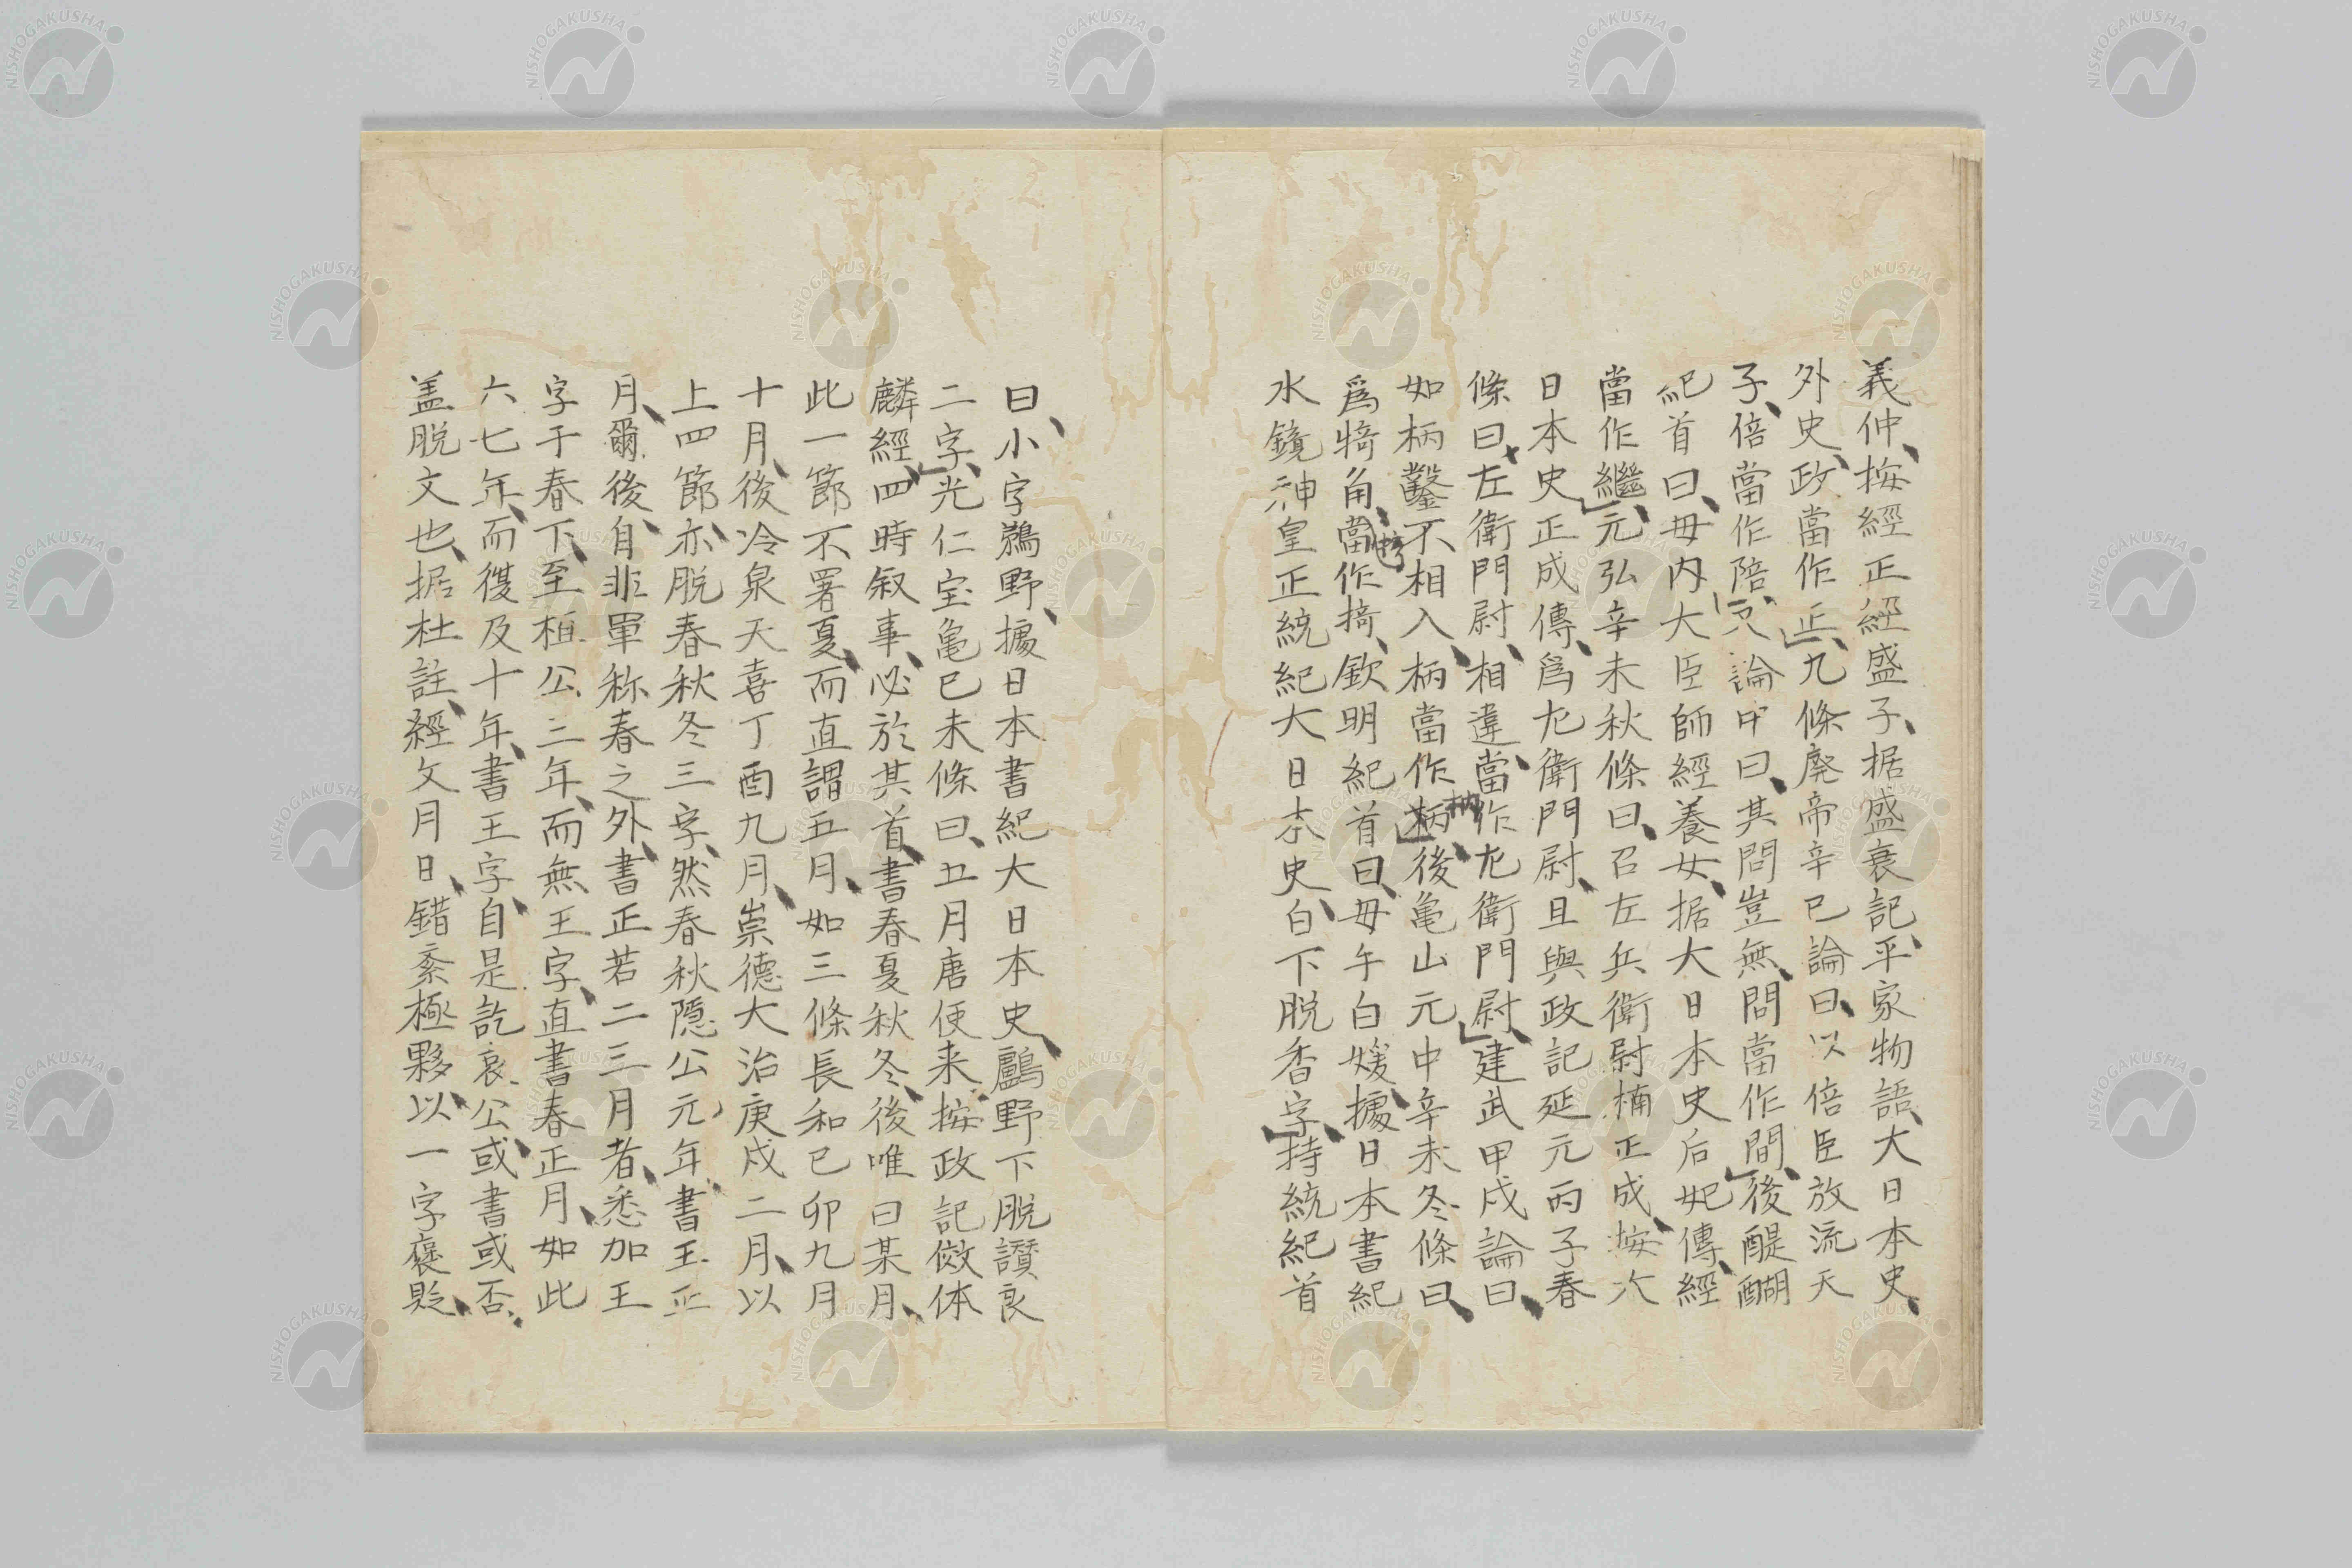 義仲、按經正經盛子、据盛衰記、平家物語、大日本史、
外史、政當作正、九條廃帝辛巳論曰、以倍臣放流天
子、倍當作陪、又論中曰、其問豈無、問當作間、後醍醐
紀首曰、毋內大臣師經養女、据大日本史后妃傳、經
當作繼、元弘辛未秋條曰、召左兵衛尉楠正成、按大
日本史正成傳、爲尢衛門尉、且與政記延元丙子春
條曰左衛門尉、相違、當作尢衛門尉、建武甲戍論曰、
如柄鑿不相入、柄當作枘、後亀山元中辛未冬條曰、
爲犄角、當作掎、欽明紀首曰、毋午白媛、據日本書紀
水鏡神皇正統紀大日本史、白下脫香字、持統紀首
曰、小字鵜野、據日本書紀大日本史、鸕野下脫讃良
二字、光仁宝亀巳未條曰、五月唐使来、按政記倣体
麟經、四時叙事、必於其首、書春夏秋冬、後唯曰某月、
此一節不署夏、而直謂五月、如三條長和已卯九月
十月、後冷泉天喜丁酉九月、崇德大治庚戍二月、以
上四節、亦脫春秋冬三字、然春秋隠公元年、書王正
月、爾後、自非單称春之外、書正若二三月者、悉加王
字于春下、至桓公三年、而無王字、直書春正月、如此
六七年、而復及十年、書王字、自是訖哀公、或書或否、
盖脫文也、据杜註、經文月日、錯紊極夥、以一字褒貶、